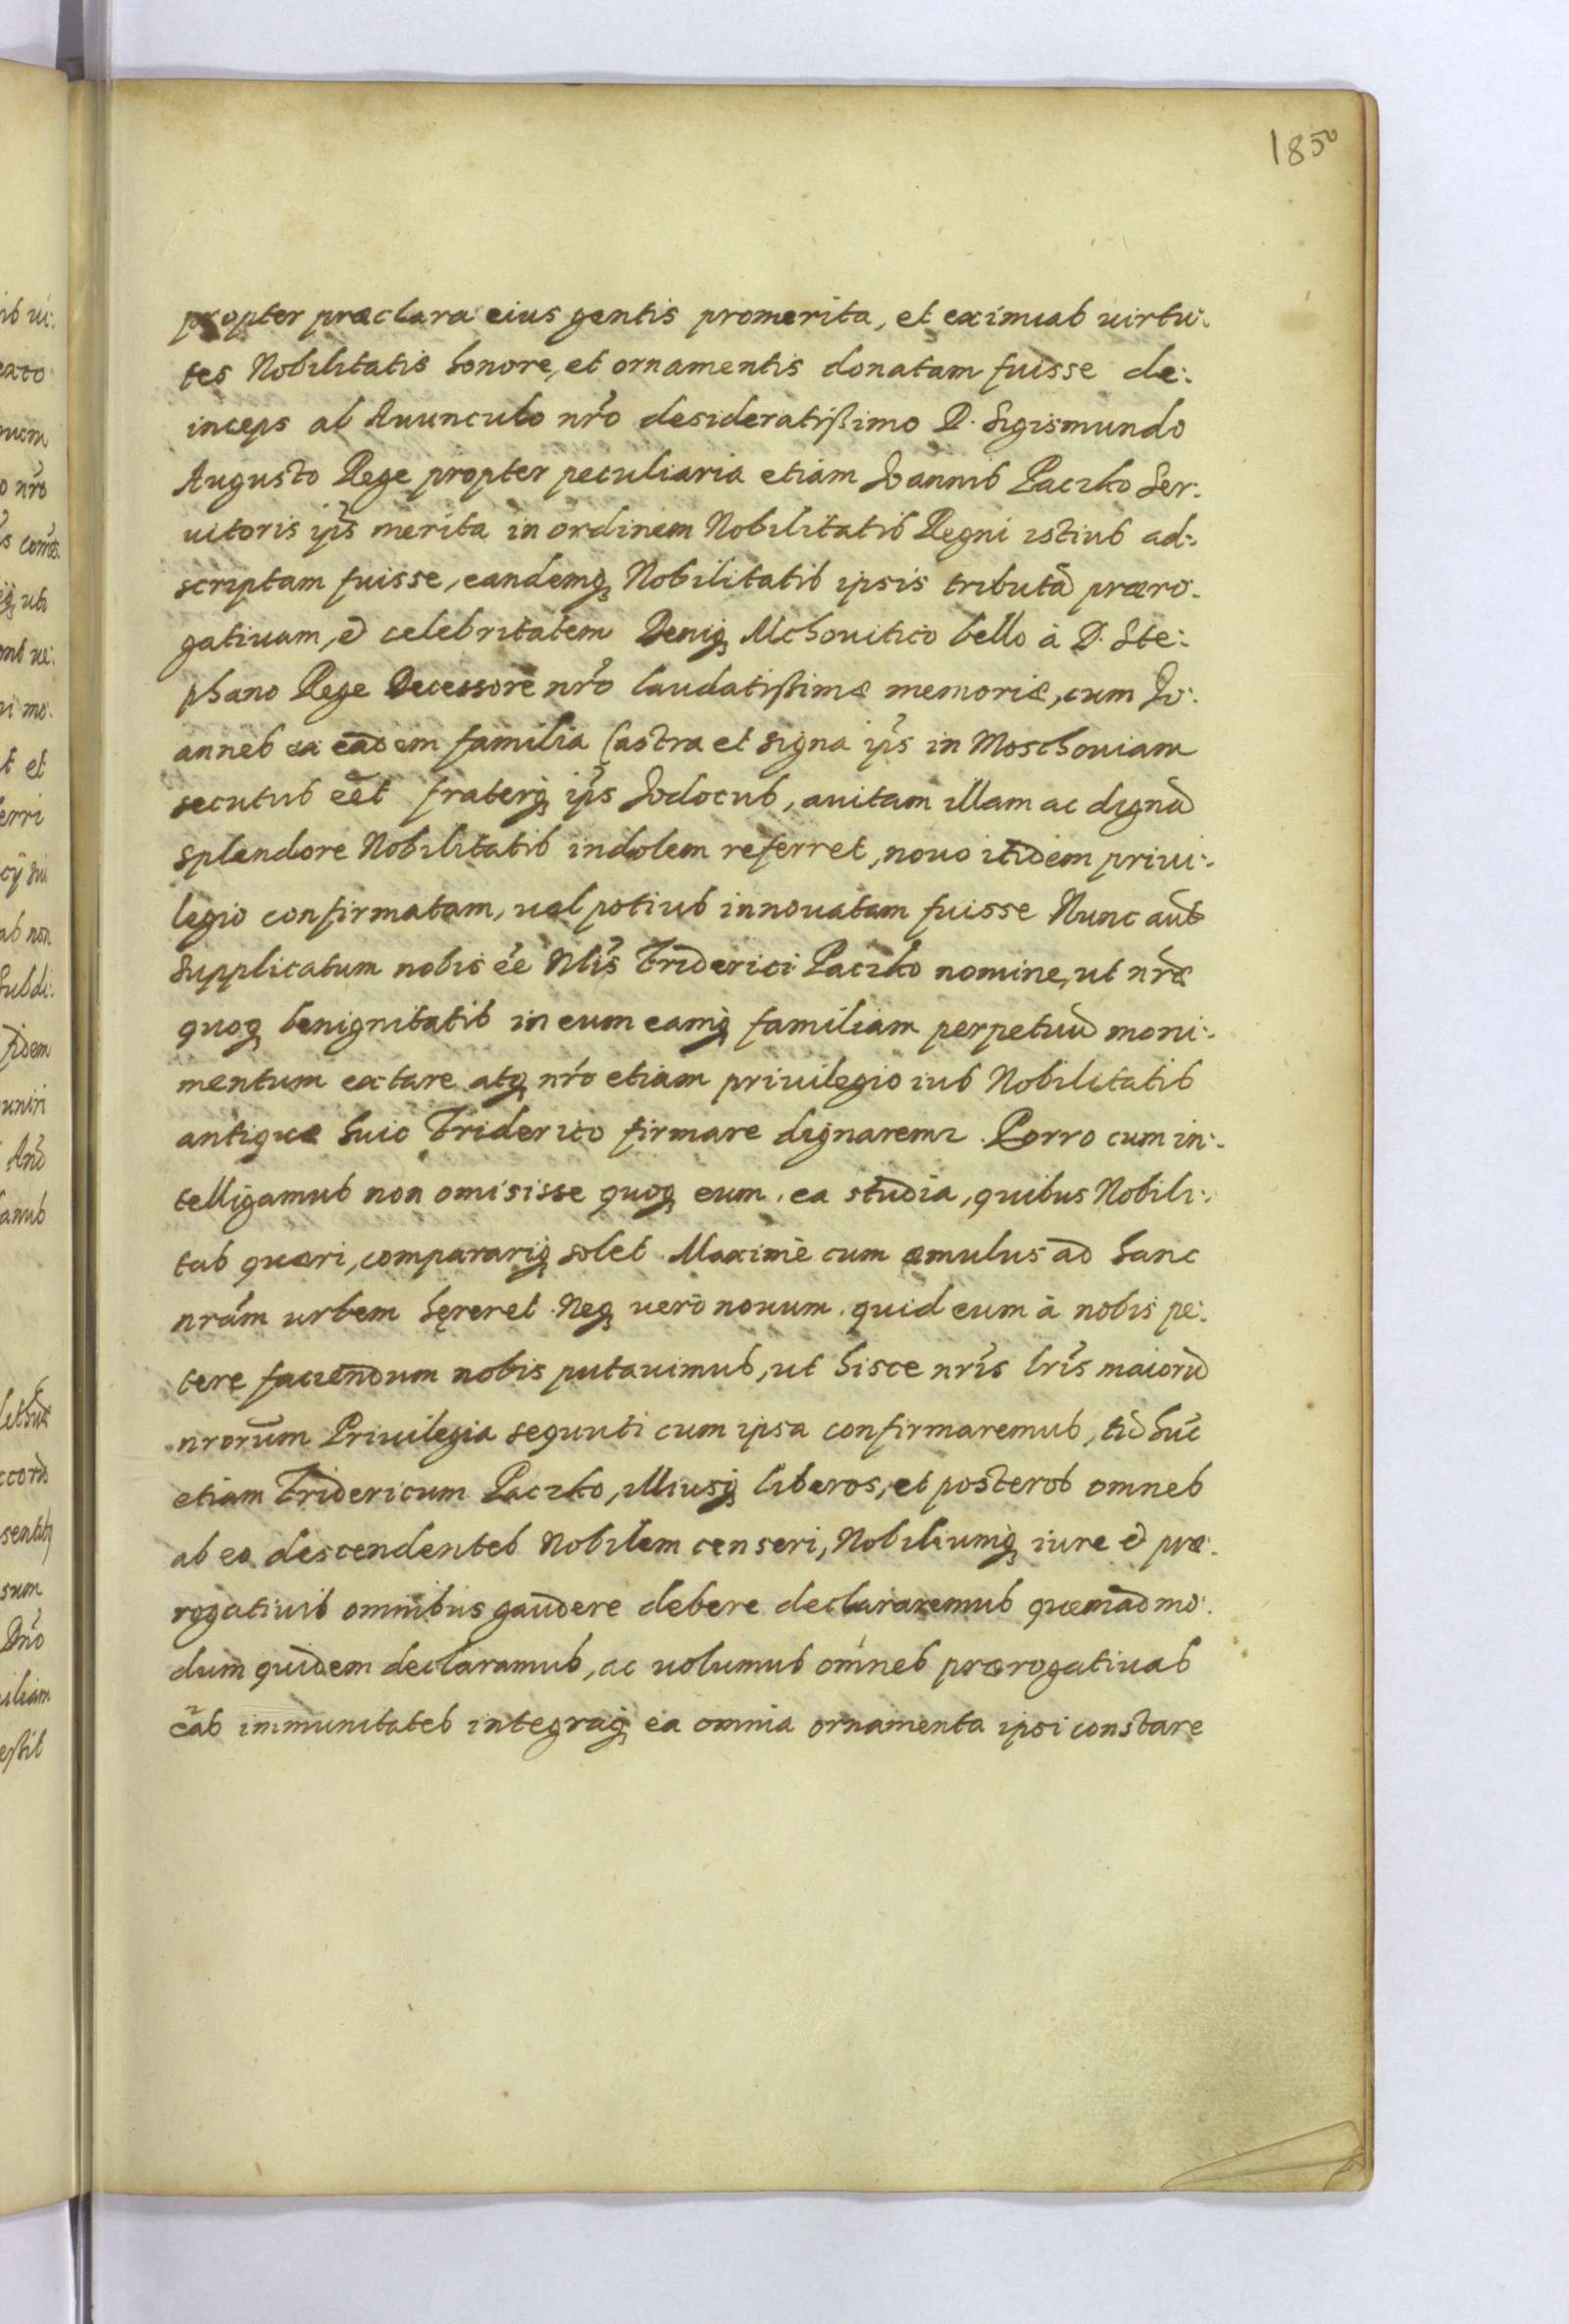 1850
propter præclara eius gentis promerita, et eximias uirtu:
tes Nobilitatis honore, et ornamentis donatam fuisse de:
inceps ab Auunculo nr̃o desideratißimo D. Sigismundo
Augusto Rege propter peculiaria etiam Joannis Paczko Ser:
uitoris ip̃s merita in ordinem Nobilitatis Regni istius ad:
scriptam fuisse, eandemq̨ Nobilitatis ipsis tributã præro:
gatiuam, & celebritatem Deniq̨ Mchouitico bello à D. Ste:
phano Rege Decessore nr̃o laudatißimæ memoriæ, cum Jo:
annes ex eadem familia Castra et signa ip̃s in Moschouiam
secutus eẽt fraterq̨ ip̃s Jodocus, auitam illam ac dignã
splendore Nobilitatis indolem referret, nouo itidem priui:
legio confirmatam, uel potius innouatam fuisse Nunc aũt
supplicatum nobis eẽ Nlis̃ Friderici Paczko nomine, ut nr̃æ
quoq̨ benignitatis in eum eamq̨ familiam perpetuũ moni:
mentum extare atq̨ nr̃o etiam priuilegio ius Nobilitatis
antiquæ huic Friderico firmare dignaremr. Porro cum in:
telligamus non omisisse quoq̨ eum ea studia, quibus Nobili:
tas quæri, comparariq̨ solet. Maximè cum æmulus ad hanc
nrãm urbem hęreret. Neq̨ uerò nouum quid eum à nobis pe:
tere faciendum nobis putauimus, ut hisce nrĩs lrĩs maiorũ
nrorũm Priuilegia sequuti cum ipsa confirmaremus, tũ hũc
etiam Fridericum Paczko, illiusq̨ liberos, et posteros omnes
ab eo descendentes Nobilem censeri, Nobiliumq̨ iure & præ:
rogatiuis omnibus gaudere debere declararemus quemadmo:
dum quidem declaramus, ac uolumus omnes prærogatiuas
eãs immunitates integraq̨ ea omnia ornamenta ipsi constare